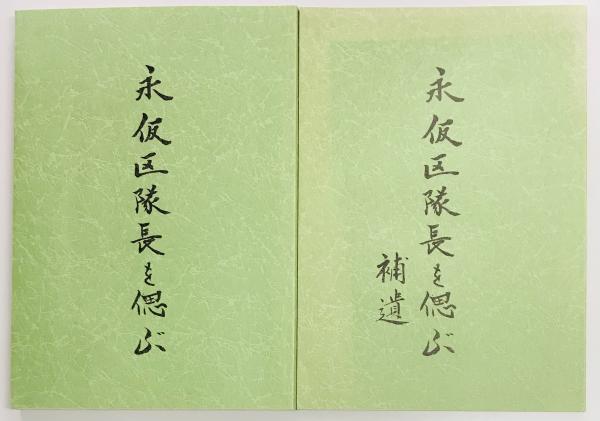 永仮区隊長を偲ぶ
永仮区隊長を偲ぶ
補遺